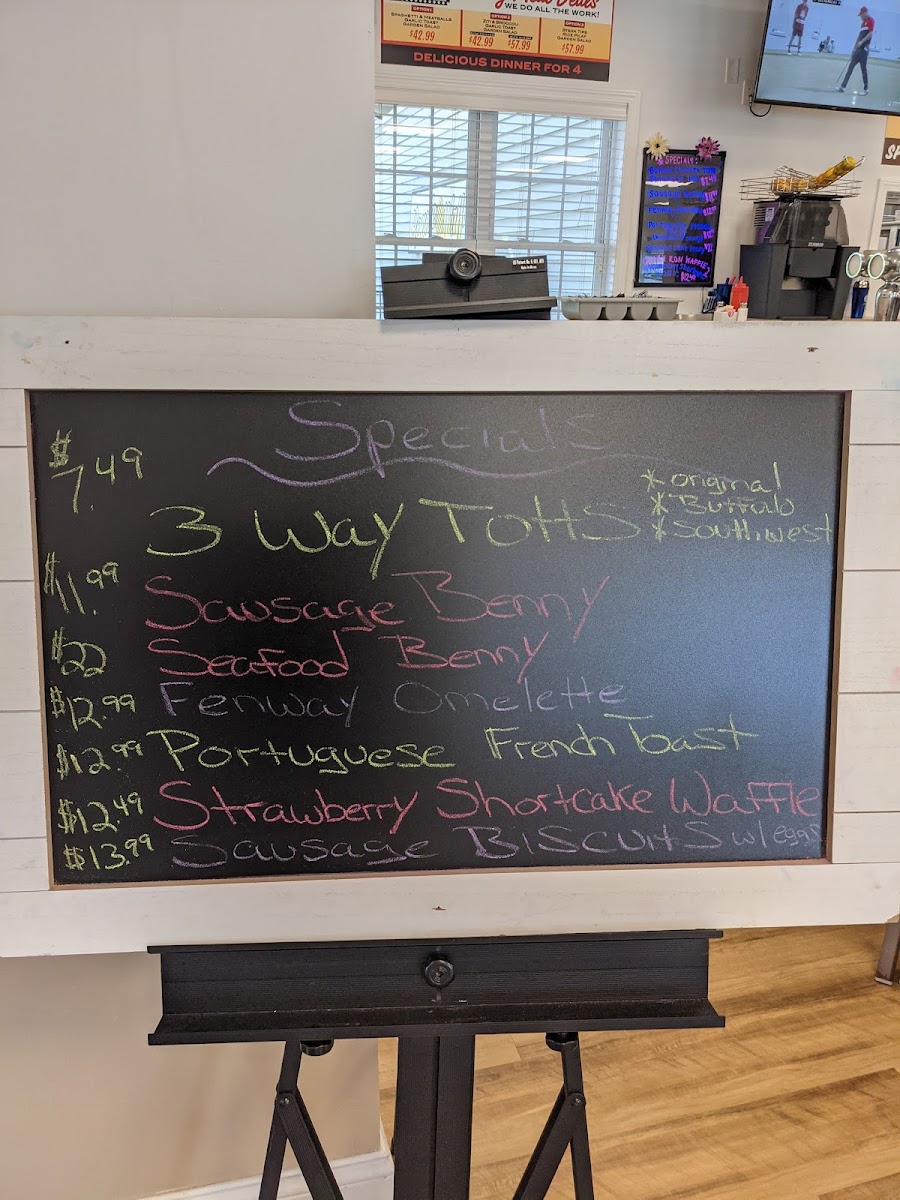 WE DO ALL THE WORK!
OPTION 1
SPAGHETTI & MEATBALLS
GARLIC TOAST
GARDEN SALAD
$42.99
OPTION 2
ZITI & BROCCOLI
GARLIC TOAST
GARDEN SALAD
$42.99 $57.99
OPTION 3
STEAK TIPS
RICE PILAF
GARDEN SALAD
$57.99
DELICIOUS DINNER FOR 4
SPECIALS
SP
Specials
$7.49 3 Way Totts
* original
* Buffalo
* Southwest
$11.99 Sausage Benny
$22 Seafood Benny
$12.99 Fenway Omelette
$12.99 Portuguese French Toast
$12.49 Strawberry Shortcake Waffle
$13.99 Sausage Biscuits w/eggs